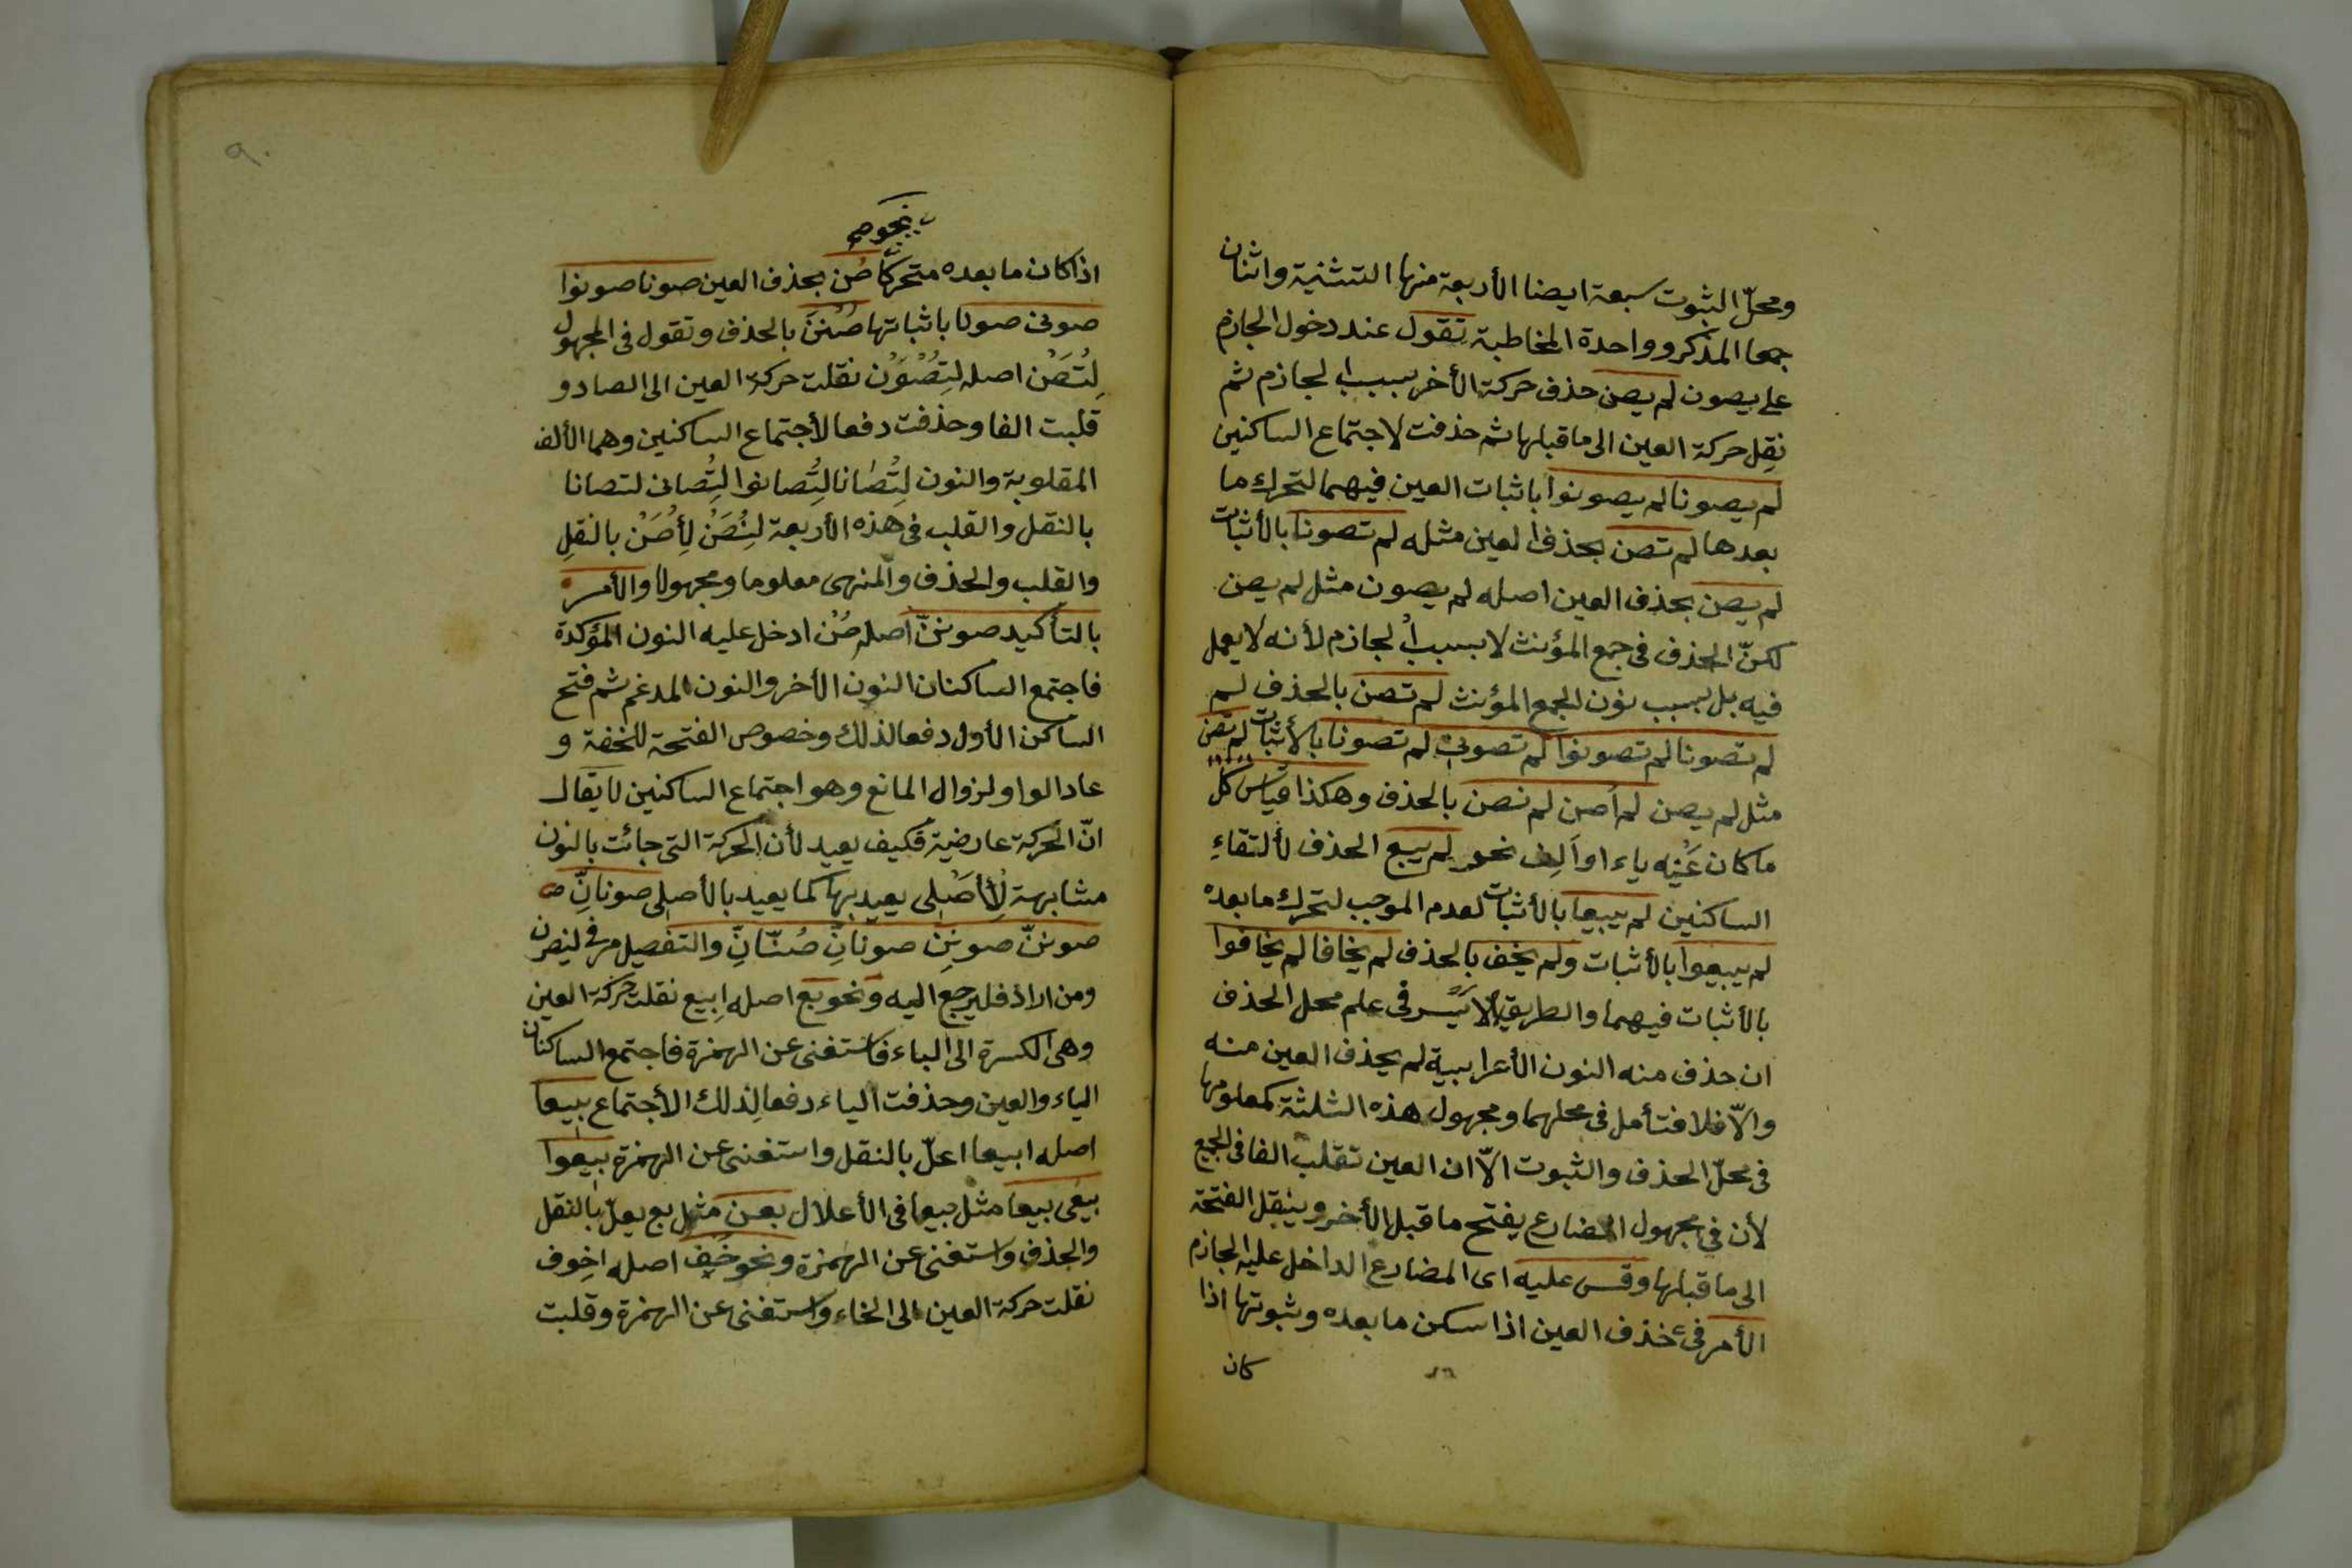 ومحلّ الثبوت سبعة ايضا الأربعة منها التثنية واثنان
جمعا المذكر وواحدة المخاطبة تقول عند دخول الجازم
على يصون لم يصن حذف حركة الأخر بسبب الجازم ثم
نقِل حركة العين الى ما قبلها ثم حذفت لاجتماع الساكنين
لم يصونا لم يصونوا باثبات العين فيهما لتحرك ما
بعدها لم تصن بحذف العين مثله لم تصونا بالأثبات
لم يصن بحذف العين اصله لم يصون مثل لم يصن
لكنّ الحذف فى جمع المؤنث لا بسبب الجازم لأنه لا يعمل
فيه بل بسبب نون الجمع المؤنث لم تصن بالحذف لم
لم تصونا لم تصونوا لم تصونى لم تصونا بالأثبات لم تصن
مثل لم يصن لم اصن لم نصن بالحذف وهكذا قياس كل
ما كان عَيْنِه ياء او الِف نحو لم يبع الحذف لألتقاءِ
الساكنين لم يبيعا بالأثبات لعدم الموجب لتحرك ما بعده
لم يبيعوا بالأثبات ولم يخف بالحذف لم يخافا لم يخافوا
بالأثبات فيهما والطريق الأيسر فى علم محل الحذف
ان حذف منه النون الأعرابية لم يحذف العين منه
والّا فلا فتأمل فى محلهما ومجهول هذه الثلثة كمعلومها
فى محلّ الحذف والثبوت الّا ان العين تقلب الفا فى الجميع
لأن فى مجهول المضارع يفتح ما قبل الأخر وينقل الفتحة
الى ما قبلها وقس عليه اى المضارع الداخل عليه الجازم
الأمر فى حذف العين اذا سكن ما بعده وثبوتها اذا
كان
٩٠
نحو صن
اذا كان ما بعده متحركا صُن بحذف العين صونا صونوا
صونى صونا باثباتها صُنَّ بالحذف وتقول فى المجهول
لِتُصَنْ اصله لِتُصْوَنْ نقلت حركة العين الى الصاد و
قلبت الفا وحذفت دفعا لأجتماع الساكنين وهما الألف
المقلوبة والنون لِتُصَانا لِتُصانوا لِتُصانى لتصانا
بالنقل والقلب فى هذه الأربعة لِنُصَنْ لِأُصَنْ بالنقلِ
والقلب والحذف والمنهى معلوما ومجهولا والأمر
بالتأكيد صوننّ اصله صُنْ ادخل عليه النون المؤكدة
فاجتمع الساكنان النون الأخر والنون المدغم ثم فتح
الساكن الأول دفعا لذلك وخصوص الفتحة للخفة و
عاد الواو لزوال المانع وهو اجتماع الساكنين لا يقال
انّ الحركة عارضية فكيف يعيد لأن الحركة التى جائت بالنون
مشابهة لِلأَصْلى يعيد بها كما يعيد بالأصلى صونانّ
صوننّ صوننِ صونانِّ صُنّانِّ والتفصيل مرفى لينصرن
ومن اراد فليرجع اليه ونحو بع اصله اِبيع نقلت حركة العين
وهى الكسرة الى الباء فاستغنى عن الهمزة فاجتمع الساكنان
الياء والعين وحذفت الياء دفعا لذلك الأجتماع بيعا
اصله ابيعا اعلّ بالنقل واستغنى عن الهمزة بيعوا
بيعى بيعا مثل بيعا فى الأعلال بعن مثل بع يعلّ بالنقل
والحذف واستغنى عن الهمزة ونحو خَف اصله اخوف
نقلت حركة العين الى الخاء واستغنى عن الهمزة وقلبت